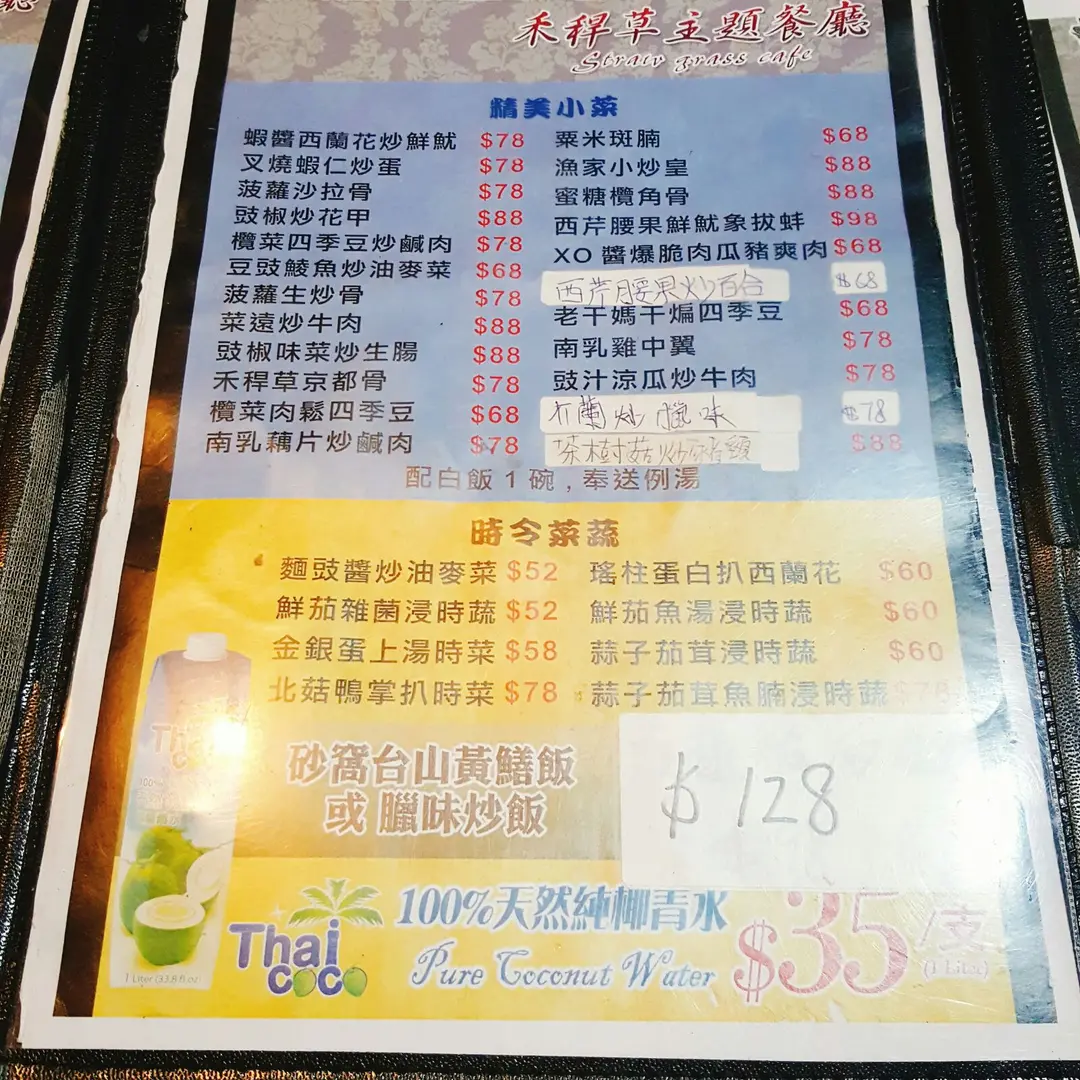 禾稈草主題餐廳
Straw grass cafe
精美小菜
蝦醬西蘭花炒鮮魷 $78
叉燒蝦仁炒蛋 $78
菠蘿沙拉骨 $78
豉椒炒花甲 $88
欖菜四季豆炒鹹肉 $78
豆豉鯪魚炒油麥菜 $68
菠蘿生炒骨 $78
菜遠炒牛肉 $88
豉椒味菜炒生腸 $88
禾稈草京都骨 $78
欖菜肉鬆四季豆 $68
南乳藕片炒鹹肉 $78
粟米斑腩 $68
漁家小炒皇 $88
蜜糖欖角骨 $88
西芹腰果鮮魷象拔蚌 $98
XO 醬爆脆肉瓜豬爽肉 $68
西芹腰果炒百合 $68
老干媽干煸四季豆 $68
南乳雞中翼 $78
豉汁涼瓜炒牛肉 $78
芥蘭炒臘味 $78
茶樹菇炒 $88
配白飯 1 碗 , 奉送例湯
時令菜蔬
麵豉醬炒油麥菜 $52
鮮茄雜菌浸時蔬 $52
金銀蛋上湯時菜 $58
北菇鴨掌扒時菜 $78
瑤柱蛋白扒西蘭花 $60
鮮茄魚湯浸時蔬 $60
蒜子茄茸浸時蔬 $60
蒜子茄茸魚腩浸時蔬 $78
砂窩台山黃鱔飯
或 臘味炒飯
$128
Thai
COCO
100%天然純椰青水
Pure Coconut Water
$35/支
(1 Litre)
1 Liter (33.8 fl.oz)